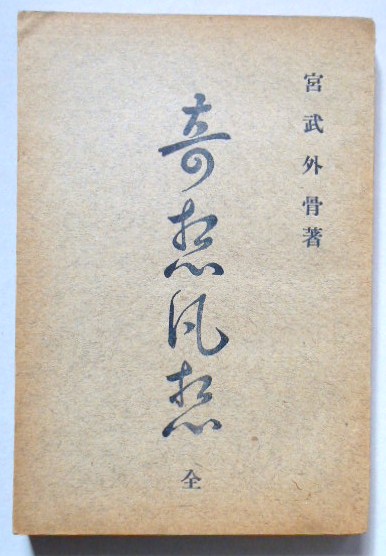 宮武外骨著
奇想凡想
全